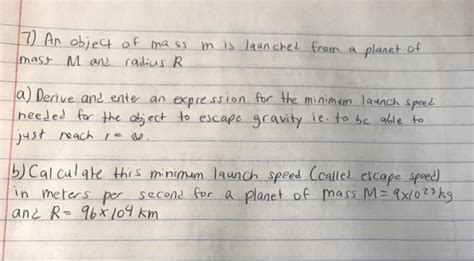 7) An object of mass m is launched from a planet of
mass M and radius R
a) Derive and enter an expression for the minimum launch speed
needed for the object to escape gravity ie. to be able to
just reach r = ∞.
b) Calculate this minimum launch speed (called escape speed)
in meters per second for a planet of mass M = 9x10²³kg
and R = 96x10⁴ km